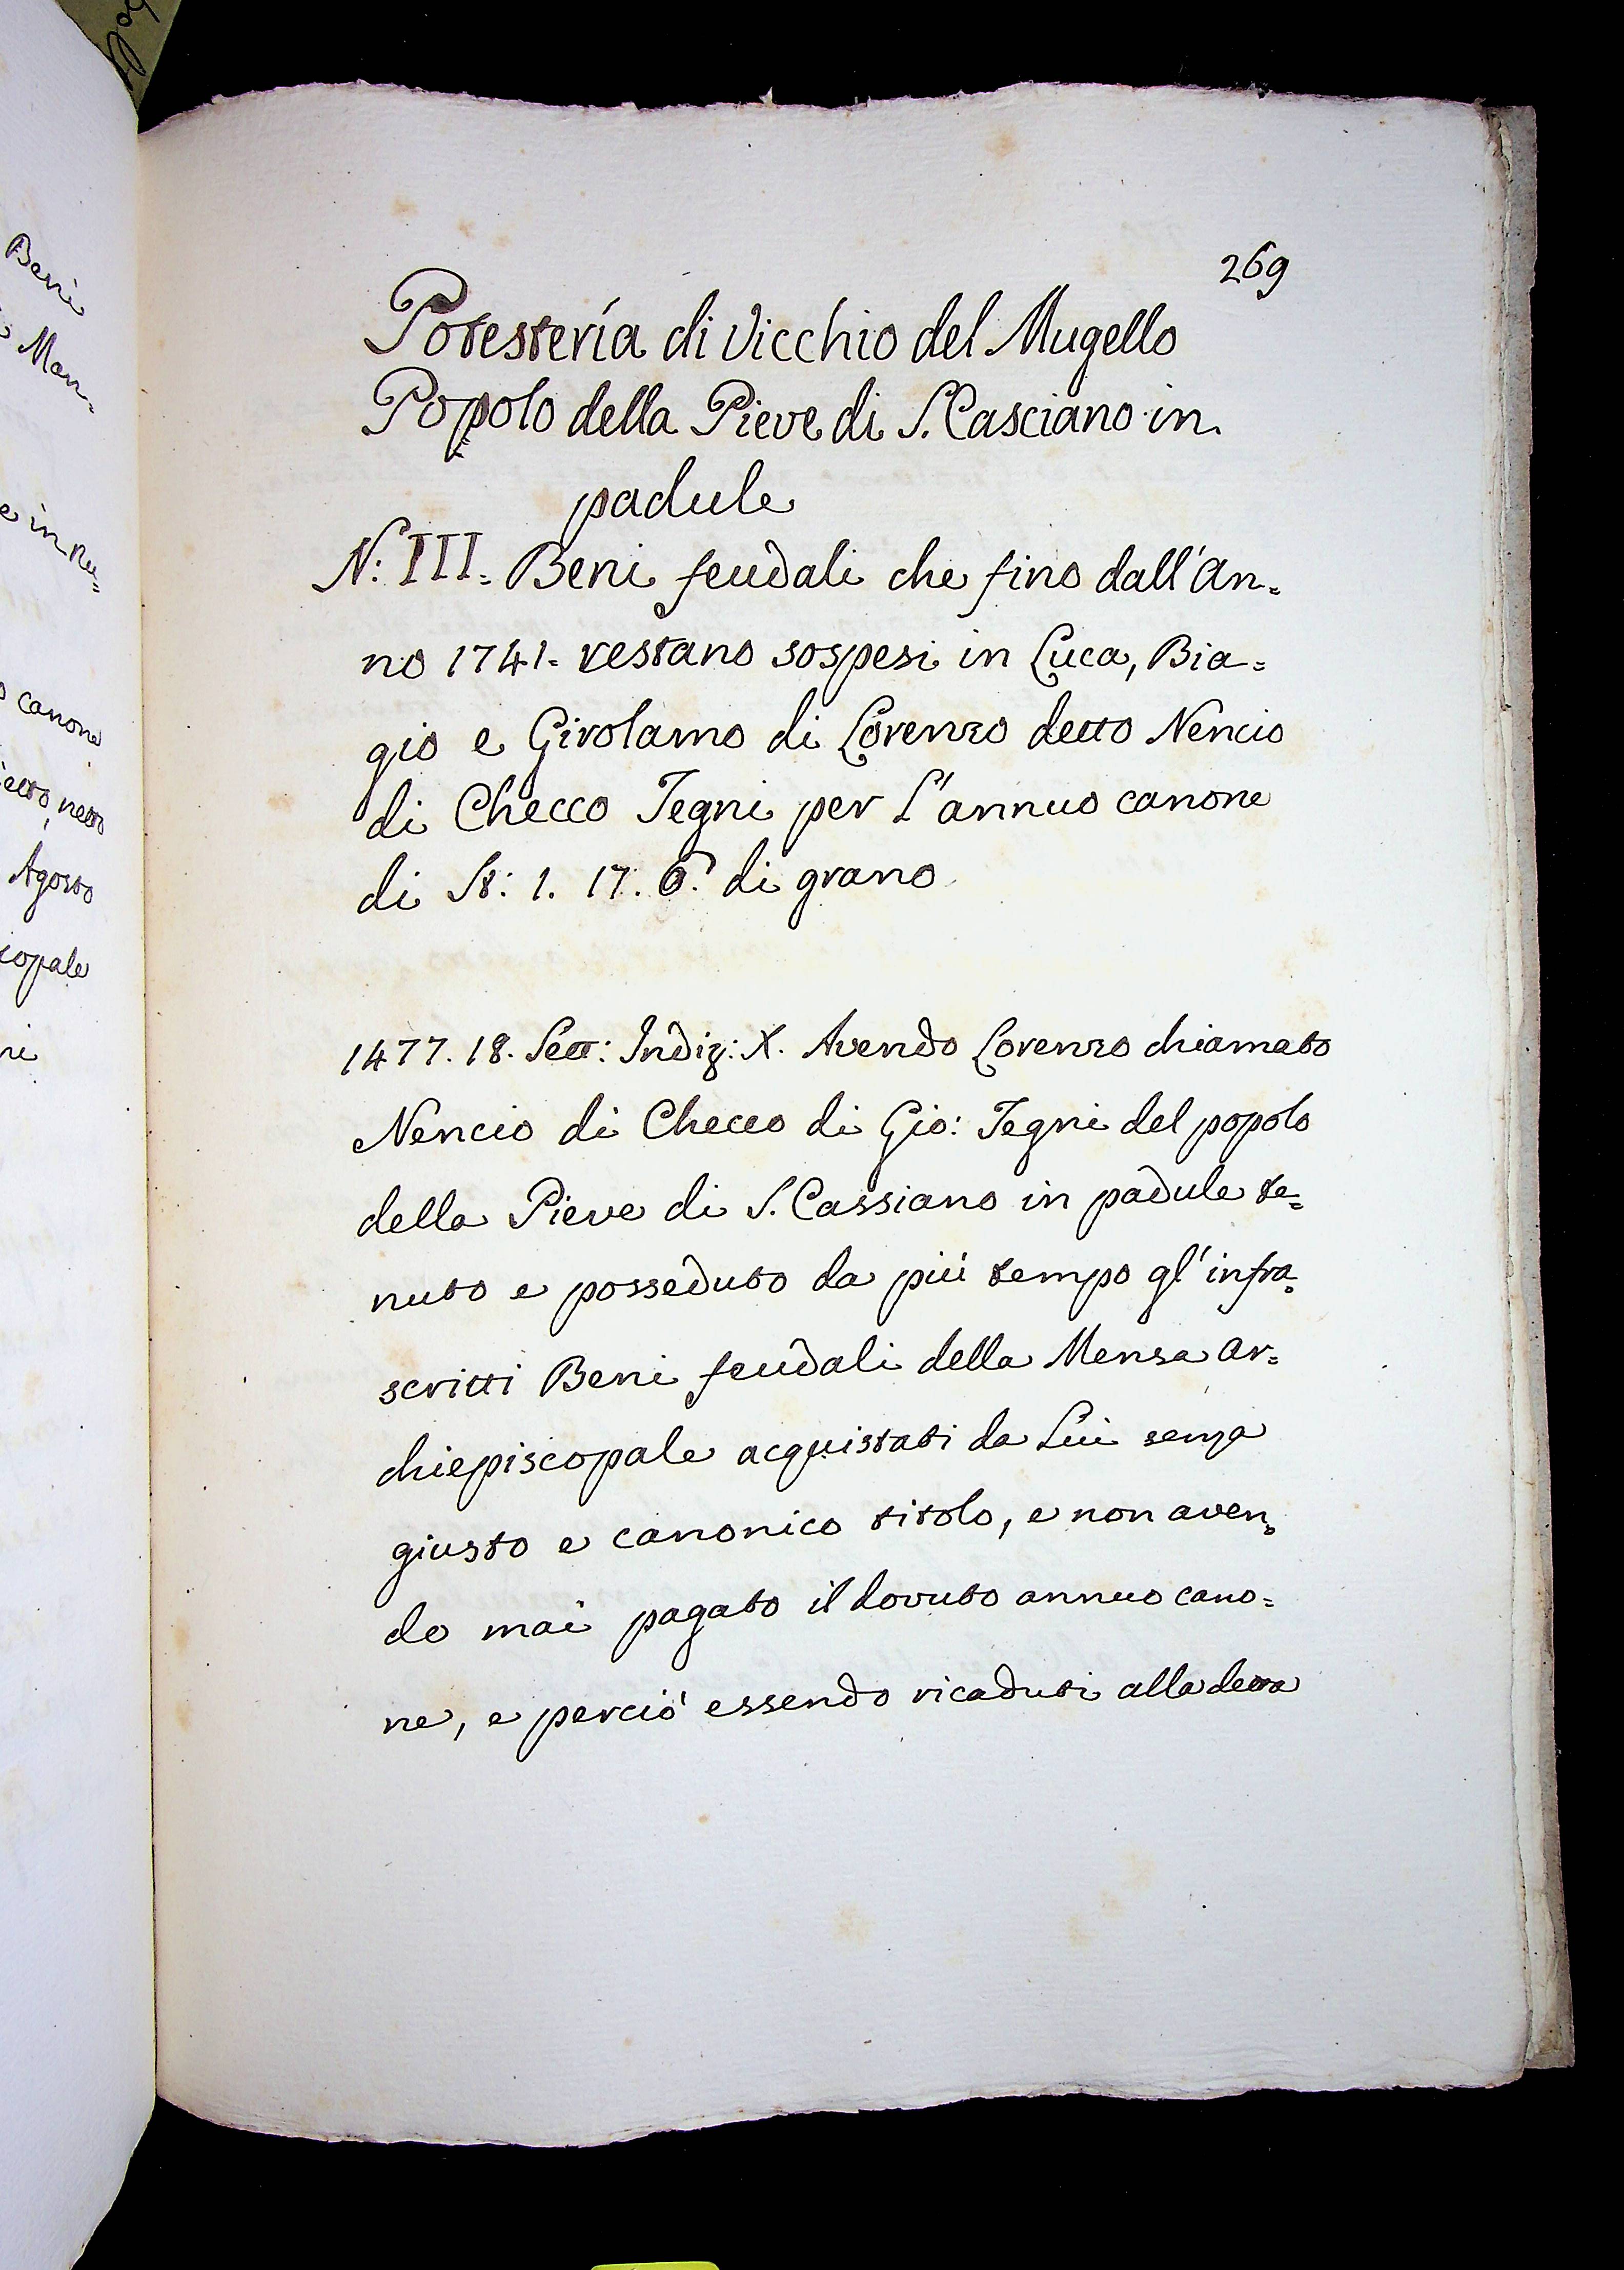 Beni
Man=
e in Ru=
canone
netto
Agosto
copale
ni
269
Potestería di Vicchio del Mugello
Popolo della Pieve di S. Casciano in
padule
N: III. Beni feudali che fino dall'An=
no 1741. restano sospesi in Luca, Bia=
gio e Girolamo di Lorenzo detto Nencio
di Checco Tegni per l'annuo canone
di St: 1. 17. 6. di grano
1477. 18. Sett: Indiz: X. Avendo Lorenzo chiamato
Nencio di Checco di Gio: Tegni del popolo
della Pieve di S. Cassiano in padule te=
nuto e posseduto da più tempo gl'infra=
scritti Beni feudali della Mensa Ar=
chiepiscopale acquistati da Lui senza
giusto e canonico titolo, e non aven=
do mai pagato il dovuto annuo cano=
ne, e perciò essendo ricaduti alla detta